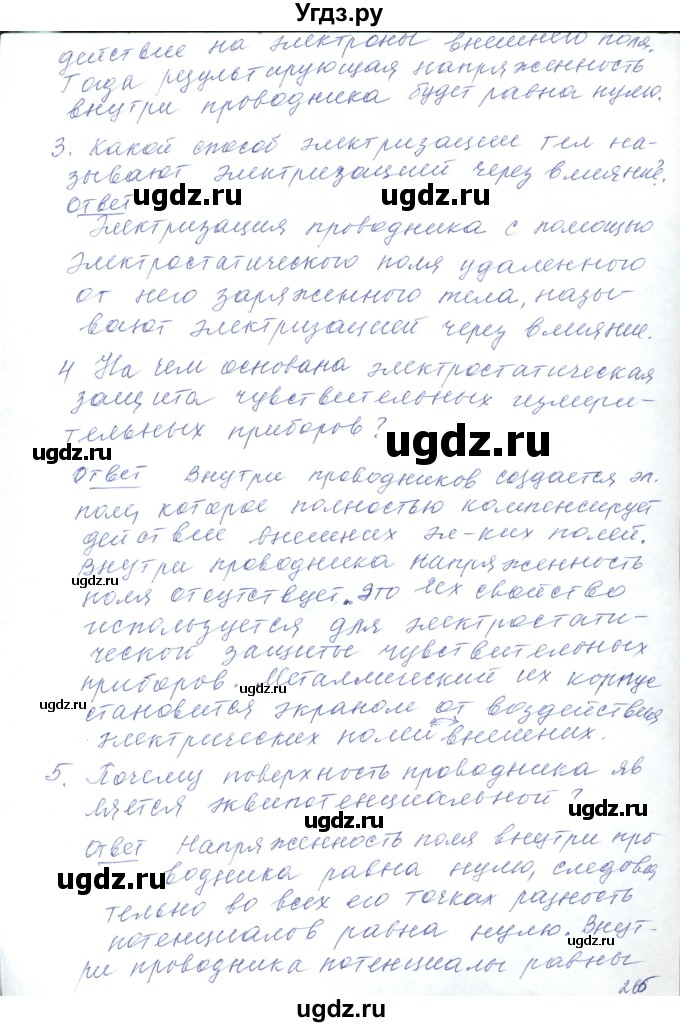 Угдз.ру
действие на электроны внешнего поля.
Тогда результирующая напряженность
внутри проводника будет равна нулю.
3. Какой способ электризации тел на-
зывают электризацией через влияние?
Ответ
Электризация проводника с помощью
электростатического поля удаленного
от него заряженного тела, назы-
вают электризацией через влияние.
4 На чем основана электростатическая
защита чувствительных измери-
тельных приборов?
Ответ Внутри проводников создается эл.
поле, которое полностью компенсирует
действие внешних эл-ких полей.
Внутри проводника напряженность
поля отсутствует. Это их свойство
используется для электростати-
ческой защиты чувствительных
приборов. Металлический их корпус
становится экраном от воздействия
электрических полей внешних.
5. Почему поверхность проводника яв
ляется эквипотенциальной?
Ответ Напряженность поля внутри про
водника равна нулю, следова
тельно во всех его точках разность
потенциалов равна нулю. Внут-
ри проводника потенциалы равны
ugdz.ru
ugdz.ru
ugdz.ru
ugdz.ru
ugdz.ru
ugdz.ru
ugdz.ru
ugdz.ru
ugdz.ru
ugdz.ru
ugdz.ru
ugdz.ru
ugdz.ru
ugdz.ru